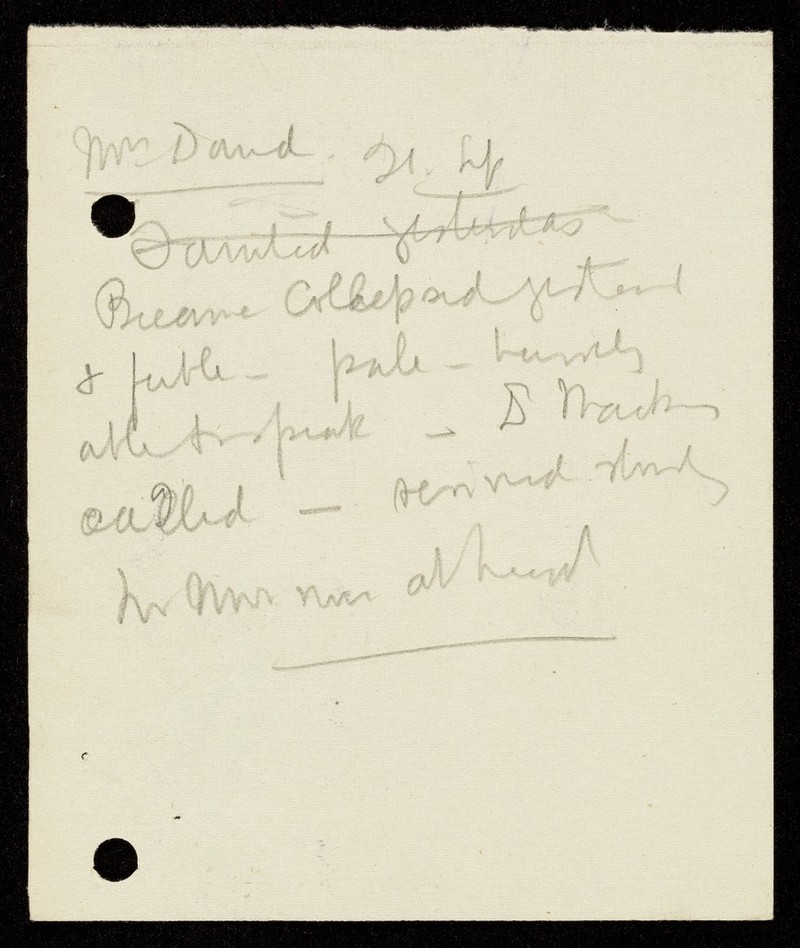 Mrs David. 21. Sep
Fainted yesterday
Became Collapsed yesterd
& feeble - pale - barely
able to speak - Dr Mack
called - revived slowly
no at heart